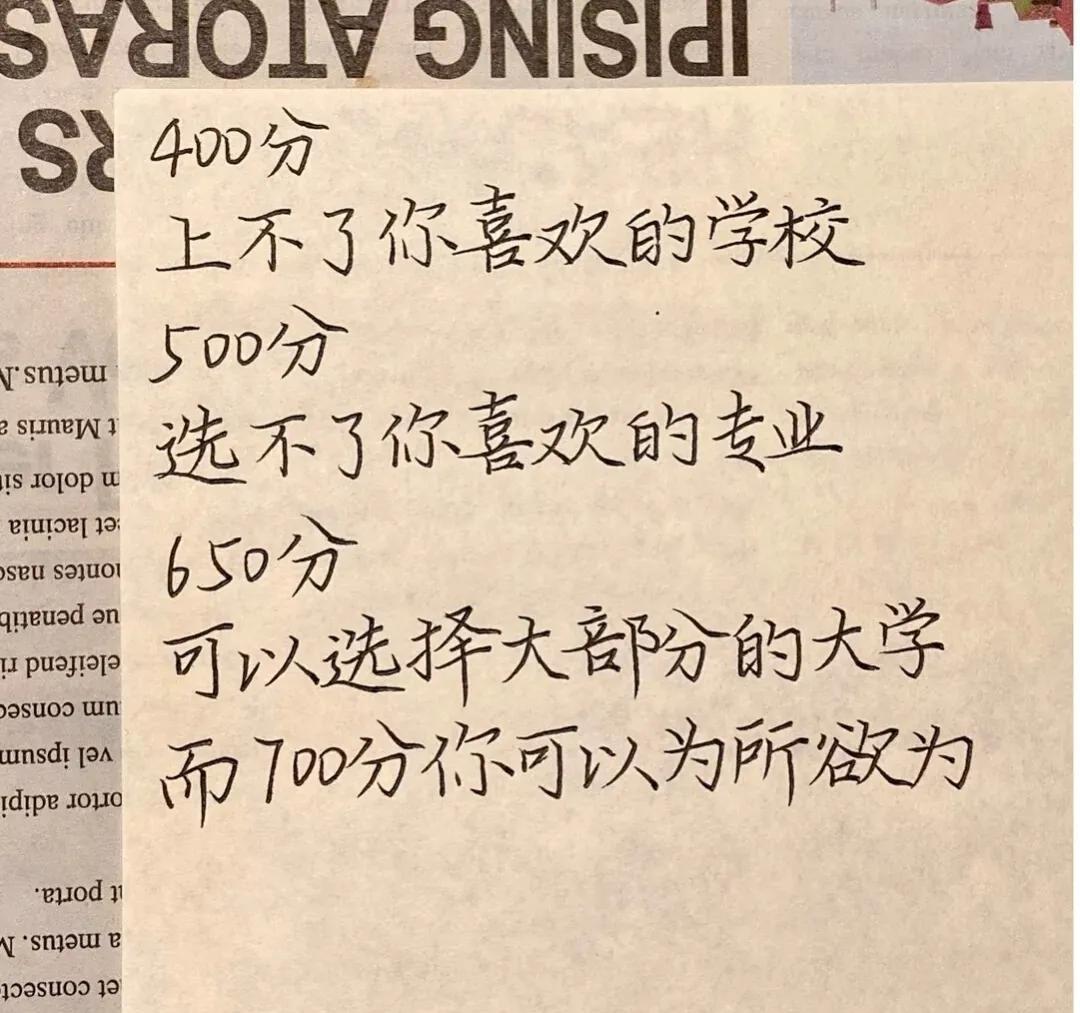 IPISING ATORAS
RS
400分
上不了你喜欢的学校
500分
选不了你喜欢的专业
650分
可以选择大部分的大学
而700分你可以为所欲为
metus.
t Mauris a
dolor sit
et lacinia
montes nasc
ue penatib
eleifend ri
um consec
vel ipsum
ortor adipi
t porta.
a metus. M
et consect